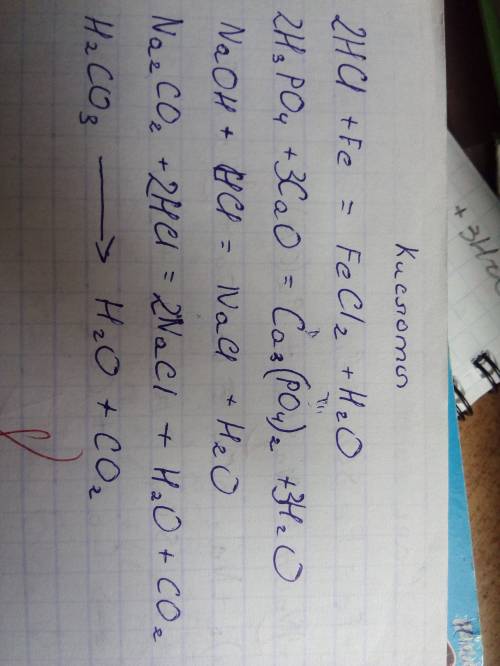 Кислоты
2HCl + Fe = FeCl₂ + H₂O
2H₃PO₄ + 3CaO = Ca₃(PO₄)₂ + 3H₂O
NaOH + HCl = NaCl + H₂O
Na₂CO₂ + 2HCl = 2NaCl + H₂O + CO₂
H₂CO₃ ⟶ H₂O + CO₂